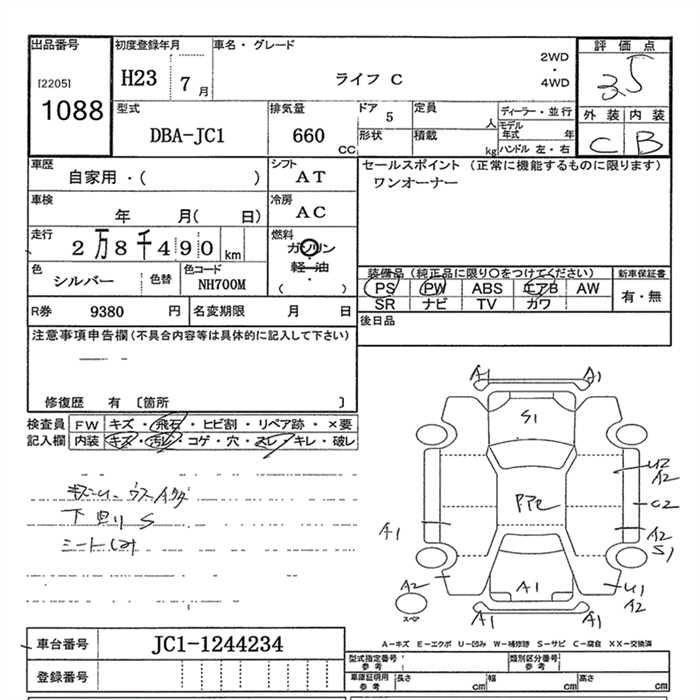 出品番号
初度登録年月
車名・グレード
評価点
[2205]
1088
H23
7
月
ライフ C
2WD
・
4WD
3.5
型式
DBA-JC1
排気量
660
CC
ドア
5
定員
人
ディーラー・並行
モデル
年式
年
形状
積載
kg
ハンドル 左・右
外装
内装
C
B
車歴
自家用・( )
シフト
AT
セールスポイント (正常に機能するものに限ります)
ワンオーナー
車検
年 月( 日)
冷房
AC
走行
2万8千490
km
燃料
ガソリン
軽・油
・
( )
色
シルバー
色替
色コード
NH700M
装備品 (純正品に限り〇をつけてください)
新車保証書
PS PW ABS エアB AW
SR ナビ TV カワ
有・無
R券
9380
円
名変期限
月 日
後日品
注意事項申告欄(不具合内容等は具体的に記入して下さい)
修復歴 有 〔箇所 〕
検査員
記入欄
FW
キズ・飛石・ヒビ割・リペア跡・×要
内装
キズ・汚レ・コゲ・穴・スレ・キレ・破レ
下回りS
A1
A1
S1
U2
A2
PPe
C2
A1
A2
S1
A2
A1
U1
A2
スペア
A1
A1
A-キズ E-エクボ U-凹み W-補修跡 S-サビ C-腐食 XX-交換済
車台番号
JC1-1244234
型式指定番号
参考
類別区分番号
参考
登録番号
車庫証明用
参考
長さ
cm
幅
cm
高さ
cm